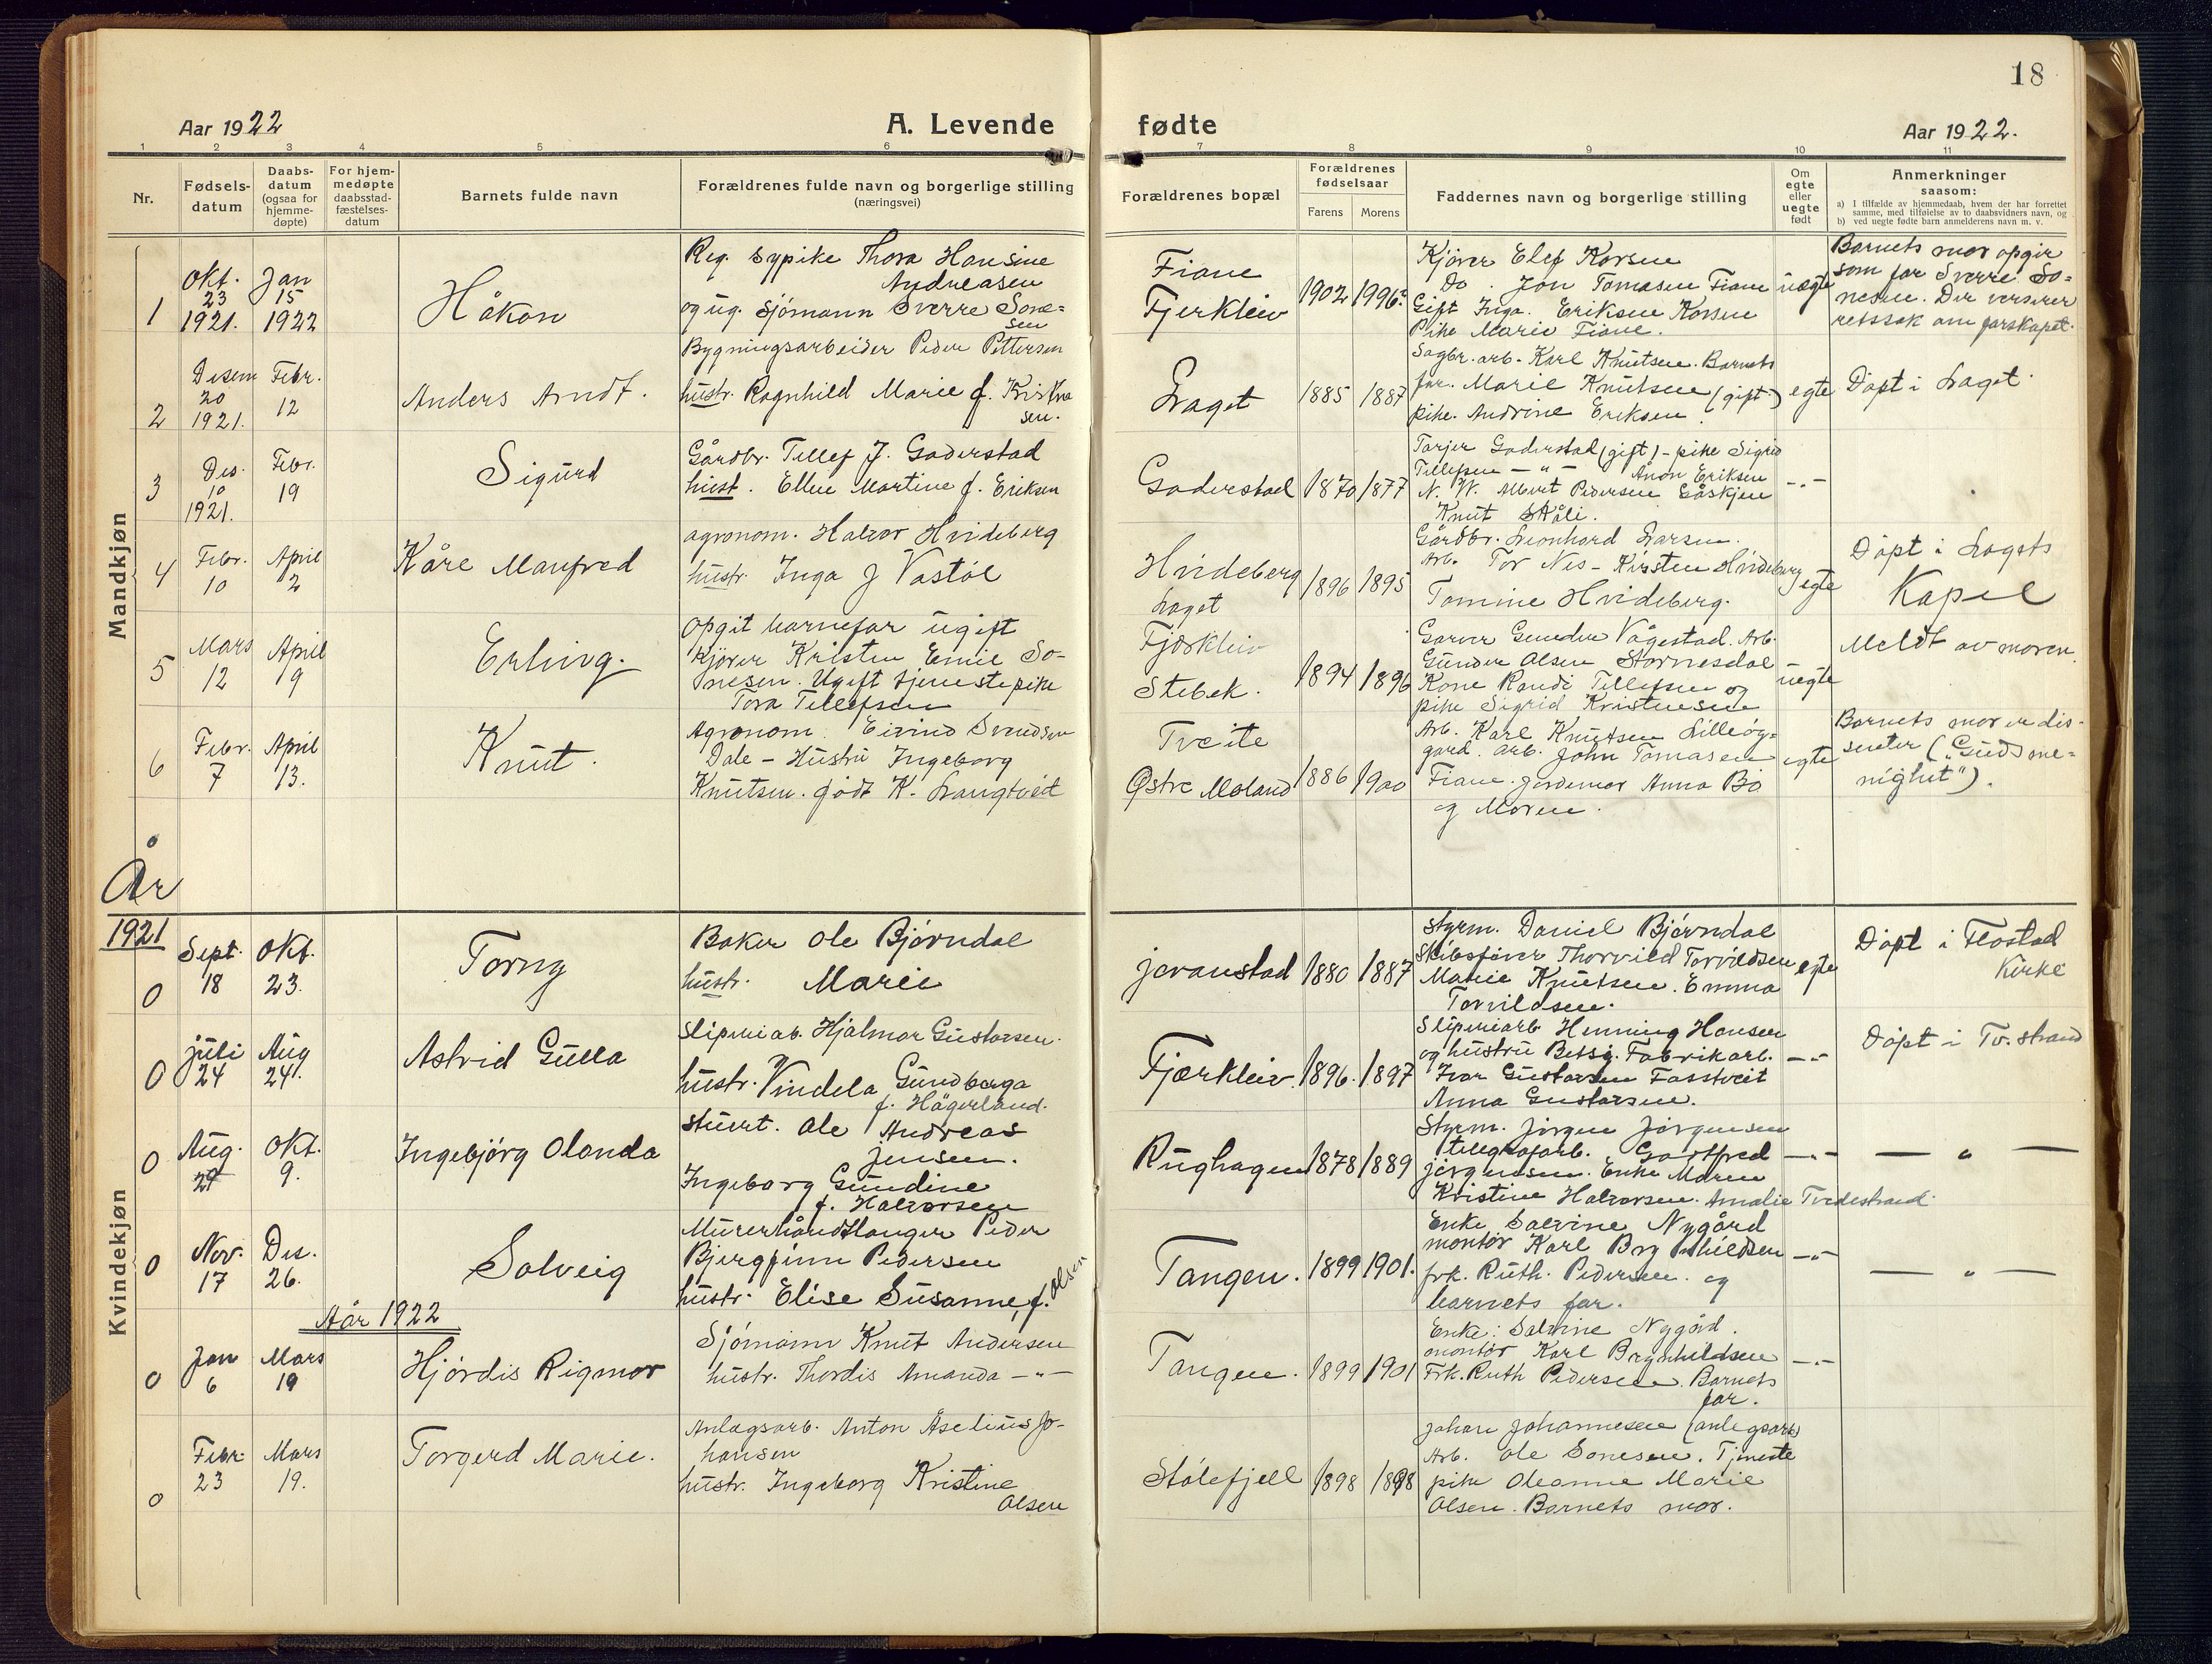 18
Aar 1922
A. Levende
fødte
Aar 1922.
1 2 3 4 5 6 7 8 9 10 11
Nr.
Fødsels-
datum
Daabs-
datum
(ogsaa for
hjemme-
døpte)
For hjem-
medøpte
daabsstad-
fæstelses-
datum
Barnets fulde navn
Forældrenes fulde navn og borgerlige stilling
(næringsvei)
Forældrenes bopæl
Forældrenes
fødselsaar
Farens Morens
Faddernes navn og borgerlige stilling
Om
egte
eller
uegte
født
Anmerkninger
saasom:
a) I tilfælde av hjemmedaab, hvem der har forrettet
samme, med tilføielse av to daabsvidners navn, og
b) ved uegte fødte barn anmelderens navn m. v.
Mandkjøn
1
Okt.
23
1921.
Jan
15
1922
Håkon
Reg. sypike Thora Hansine
Andreasen
og ug. sjømann Sverre Sone-
sen
Fiane
Fjerkleiv
1902 1996?
Kjører Elef Korsen
Do. Jon Tomasen Fiane
Gift Inga Eriksen Korsen
Pike Marie Fiane.
uegte
Barnets mor opgir
som far Sverre So-
nesen. Der verserer
retssak om farskapet.
2
Desem
20
1921.
Febr.
12
Anders Arndt.
Bygningsarbeider Peder Pettersen
hustr. Ragnhild Marie f. Kristna
sen.
Laget
1885 1887
Sagbr. arb. Karl Knutsen. Barnets
far. Marie Knutsen (gift)
pike. Andrine Eriksen
egte
Døpt i Laget.
3
Des.
10
1921.
Febr.
19
Sigurd
Gårdbr. Tellef J. Goderstad
hust. Ellen Martine f. Eriksen
Goderstad
1870 1877
Tarjer Goderstad (gift) - pike Sigrid
Tellefsen - " - Anon Eriksen
N. W. Albert Pedersen Gåskjen
Knut Skåli.
- " -
4
Febr.
10
April
2
Kåre Manfred
Agronom. Halvor Hvideberg
hustr. Inga f Vastøl
Hvideberg
Laget
1896 1895
Gårdbr. Leonhard Larsen.
Arb. Tor Nes - Kirsten Hvideberg
Tomine Hvideberg.
egte
Døpt i Lagets
Kapel
5
Mars
12
April
19
Erling.
Opgit barnefar ugift
kjører Kristen Emil So-
nesen. Ugift tjenestepike
Tora Tellefsen
Fjærkleiv
Stebek.
1894 1896
Garver Gunder Vågestad. Arb.
Gunder Olsen Stornesdal
Kone Randi Tellefsen og
pike Sigrid Kristensen
uegte
Meldt av moren.
6
Febr.
7
April
13.
Knut.
Agronom. Eivind Svendsen
Dale - Hustru Ingeborg
Knutsen. født K. Langtveit
Tveite
Østre Moland
1886 1900
Arb. Karl Knutsen Lilleøg-
gard. arb. John Tomasen
Fiane. Jordemor Anna Bø
og Moren.
egte
Barnets mor er dis-
senter ("Guds me-
nighet").
År
1921
Kvindekjøn
0
Sept.
18
Okt.
23.
Torny
Baker Ole Bjørndal
hustr. Marie
Joranstad
1880 1887
Styrm. Daniel Bjørndal
Skibsfører Thorvild Torvildsen
Marie Knutsen. Emma
Torvildsen.
egte
Døpt i Flostad
Kirke
0
Juli
24
Aug
24.
Astrid Gulla
Sliperiab. Hjalmar Gustavsen.
hustr. Vindela Gundborga
f. Hägerland.
Fjærkleiv.
1896. 1897
Sliperiarb Henning Hansen
og hustru Betsy. Fabrikarb.
Ivar Gustavsen Fasstveit
Anna Gustavsen.
- " -
Døpt i Tv. strand
0
Aug.
29
Okt.
9.
Ingebjørg Olanda
Stuert. Ole Andreas
Jensen.
Ingeborg Gundine
f. Halvorsen
Rughagen
1878 1889
Styrm. Jørgen Jørgensen
telegrafarb. Gottfred
Jørgensen. Enke Maren
Kristine Halvorsen. Amalie Tvedestrand.
- " -
- " -
0
Nov.
17
Des.
26.
Solveig
Murerhåndtlanger Peder
Bjergfinn Pedersen
hustr. Elise Susanne, f. Olsen
Tangen.
1899 1901.
Enke Salvine Nygård
montør Karl Brynhildsen
frk. Ruth. Pedersen. og
barnets far.
- " -
- " -
Aar 1922
0
Jan
6
Mars
19
Hjørdis Rigmor
Sjømann Knut Andersen
hustr. Thordis Amanda - " -
Tangen.
1899 1901
Enke: Salvine Nygård.
montør Karl Brynhildsen
Frk. Ruth Pedersen. Barnets
far.
- " -
0
Febr.
23
Mars
19.
Torgerd Marie.
Anlægsarb. Anton Åselius Jo-
hansen
hustr. Ingeborg Kristine
Olsen
Stølefjell
1898 1898
Johan Johannesen (anlegsarb)
Arb. Ole Sonesen. Tjeneste
pike Oleanne Marie
Olsen. Barnets mor.